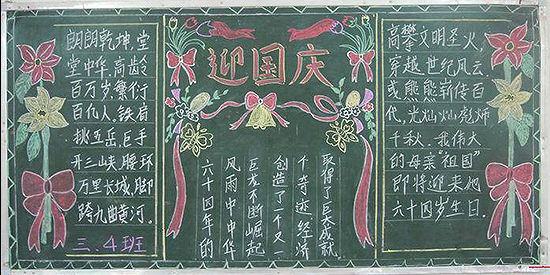 朗朗乾坤,堂
堂中华,高龄
百万岁,繁衍
百亿人,铁肩
挑五岳,巨手
开三峡,腰环
万里长城,脚
跨九曲黄河。
三.4班
迎国庆
六十四年的
风雨中中华
巨龙不断崛起
创造了一个又一
个奇迹,经济
取得了巨大成就
高攀文明圣火,
穿越世纪风云.
或熊熊薪传百
代,光灿灿彪炳
千秋.我伟大
的母亲"祖国"
即将迎来她
六十四岁生日.